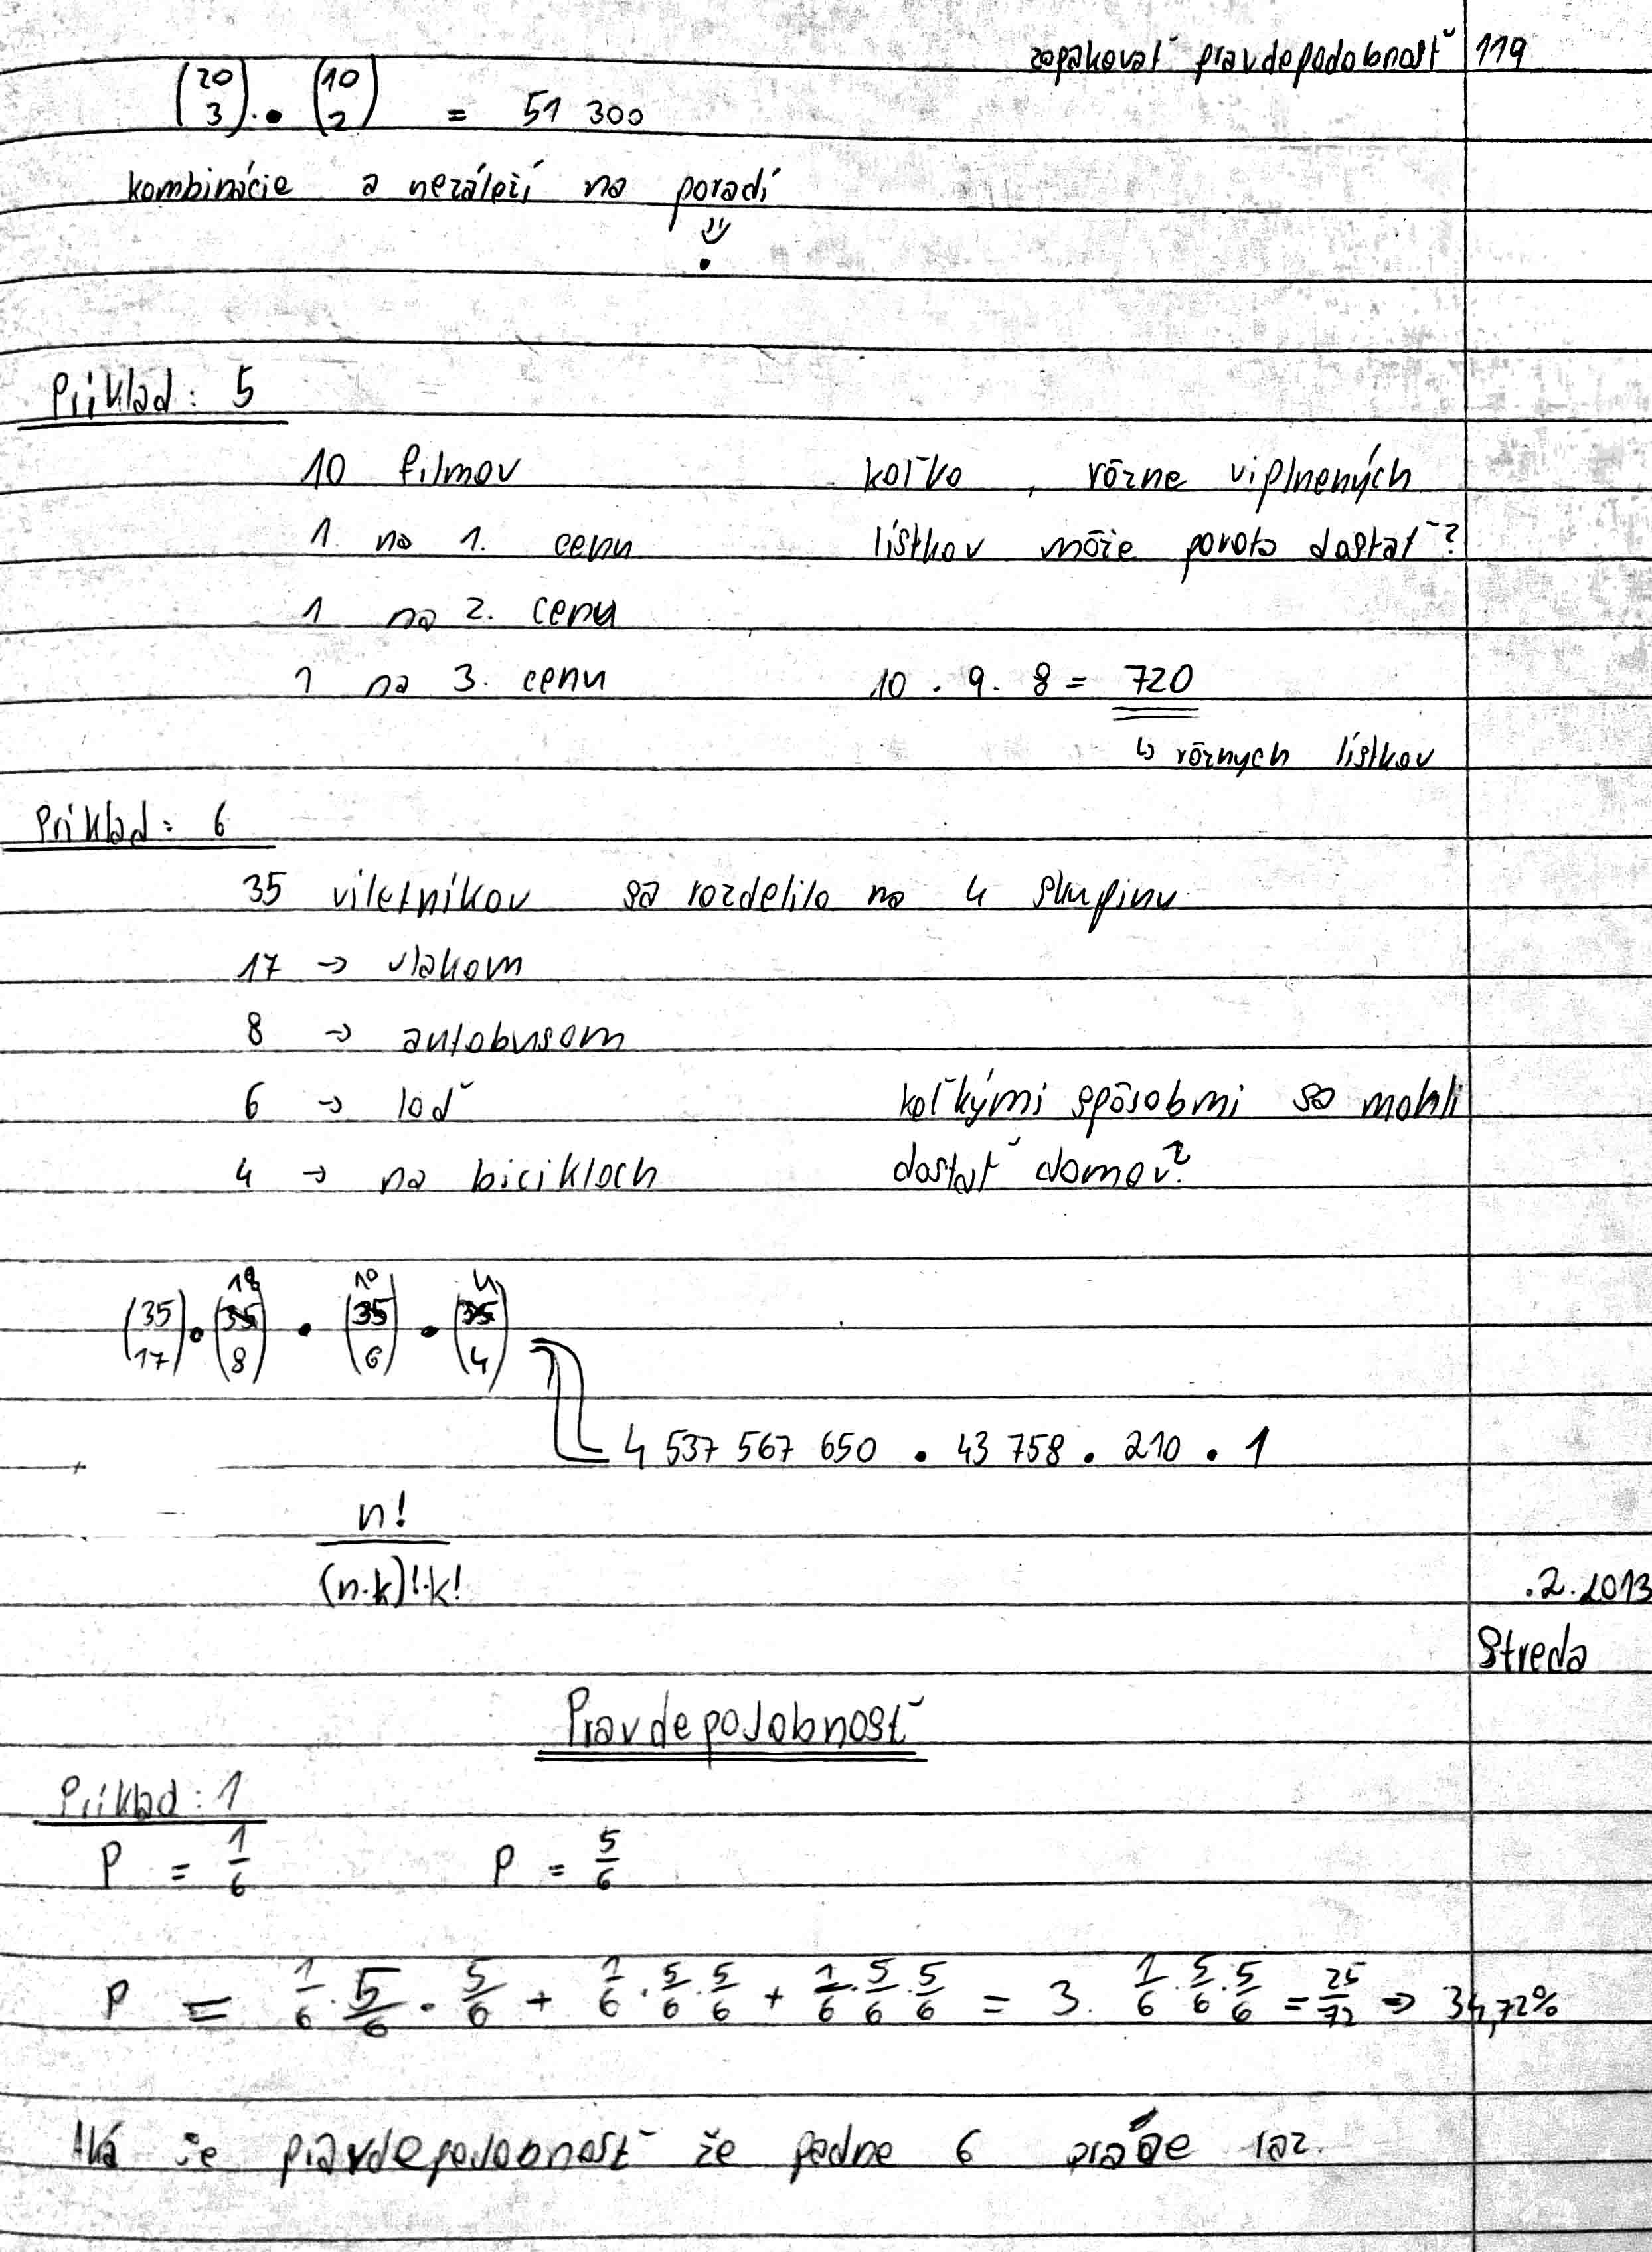 zopakovať pravdepodobnosť 119
(20 3) · (10 2) = 51 300
kombinácie a nezáleží na poradí
Príklad: 5
10 filmov koľko, rôzne viplnených
1 na 1. cenu lístkov môže porota dostať?
1 na 2. cenu
1 na 3. cenu 10 . 9 . 8 = 720
↳ rôznych lístkov
Príklad: 6
35 viletníkov sa rozdelilo na 4 skupinu
17 → vlakom
8 → autobusom
6 → loď koľkými spôsobmi sa mohli
4 → na bicikloch dostať domov?
(35 17) · (18 8) · (10 6) · (4 4)
4 537 567 650 · 43 758 · 210 · 1
n!
(n-k)!·k!
.2.2013
Streda
Pravdepodobnosť
Príklad: 1
P = 1/6 P = 5/6
P = 1/6 · 5/6 · 5/6 + 1/6 · 5/6 · 5/6 + 1/6 · 5/6 · 5/6 = 3 · 1/6 · 5/6 · 5/6 = 25/72 ⇒ 34,72%
Aká je pravdepodobnosť že padne 6 práve raz.